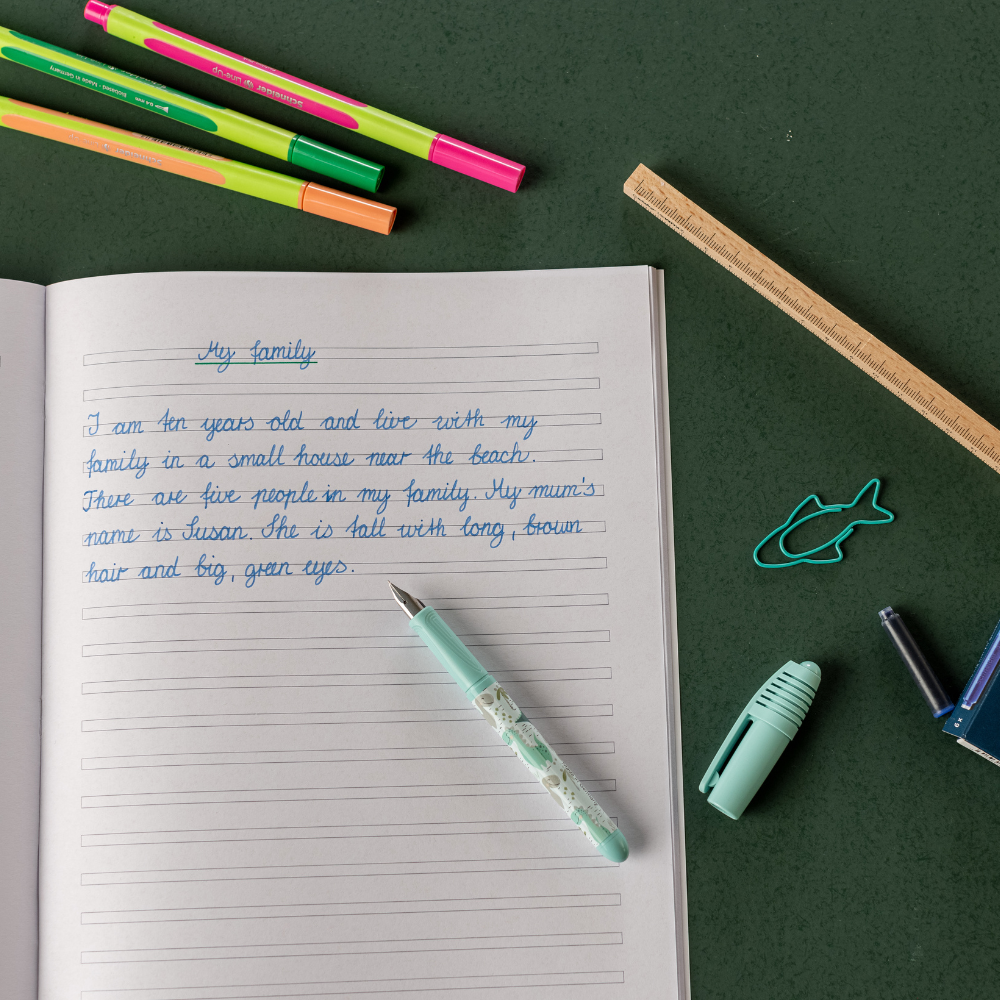 Schneider Line-Up
Line-Up 0.4 mm Pigmented - Made in Germany
Schneider
My family
I am ten years old and live with my
family in a small house near the beach.
There are five people in my family. My mum's
name is Susan. She is tall with long, brown
hair and big, green eyes.
6x